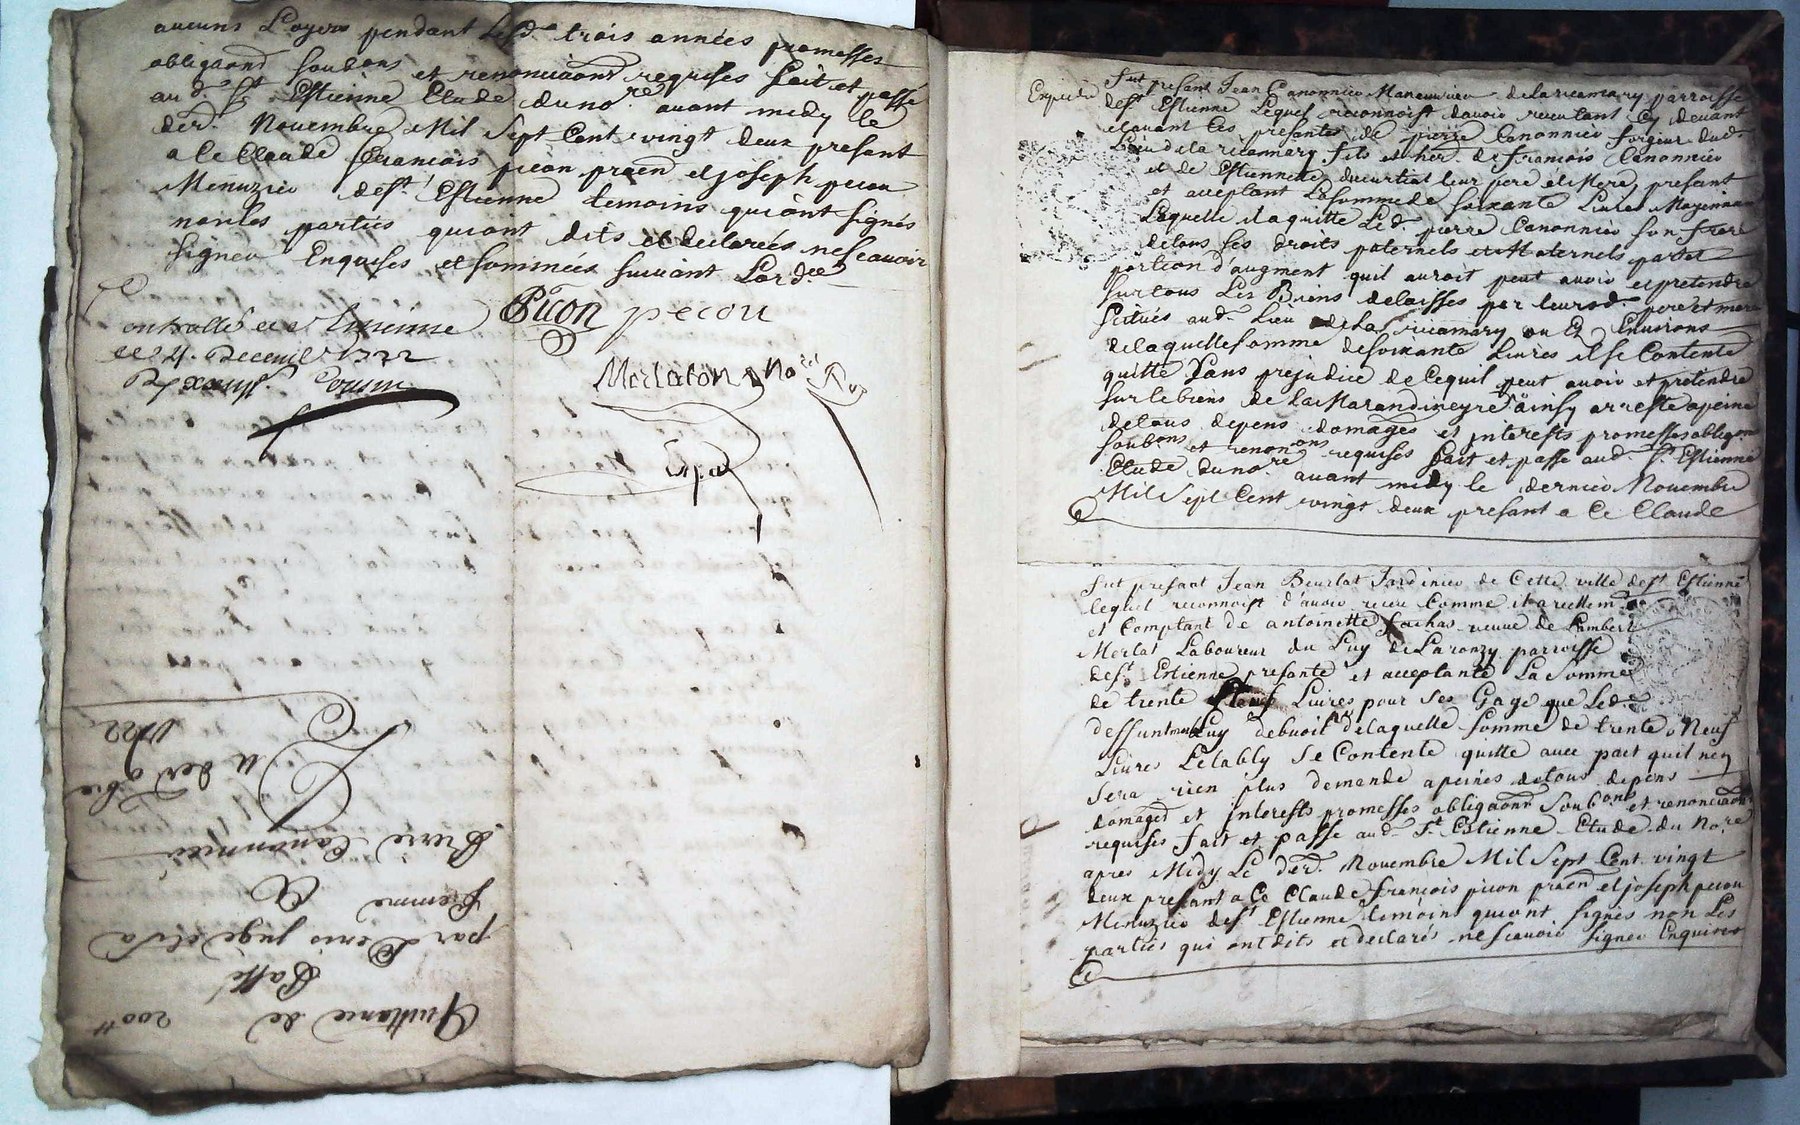 aucuns Loyers pendant lesd. trois années promesses
obligaons soubons et renonciaons requises fait et passé
aud. St Estienne Etude du nore avant midy le
der. Novembre Mil Sept Cent vingt deux presant
a Ce Claude François picon praen et joseph pecou
Menuzier de st Estienne temoins qui ont signés
non les parties qui ont dits et declarées ne scavoir
signer Enquises et sommées suivant Lord.ce
Picon pecou
Controllé a St Estienne
ce 4. Decembre 1722
Merlaton Nore Roy
Expé
Quittance de 200tt
Passé
par Denis juge et sa
femme
A
Pierre Canonnier
Du der 9bre
1722
Expedié
fut presant Jean Canonnier Manouvrier de la ricamary parroisse
de st Estienne Lequel reconnoist davoir receu tant Cy devant
et avant Ces presantes de pierre Canonnier forgeur dud.
Lieu de la ricamary fils et her. de françois Canonnier
et de Estiennette ducurtial leur pere et Mere, presant
et acceptant La somme de soixante Livres Moyennant
Laquelle il a quitte Led. pierre Canonnier son frere
de tous ses droits paternels et Maternels part et
portion d'augment quil auroit peut avoir et pretendre
sur tous Les Biens delaisses par leursd. pere et mere
scitués aud. Lieu de La ricamary ou Es Environs
de laquelle somme de soixante Livres il se Contente
quitte sans prejudice de Cequil peut avoir et pretendre
sur le biens de La Marandineyre ainsy arresté a peine
de tous depens domages et interests promesses obligaons
soubons et renonons requises fait et passé aud. St Estienne
Etude du nore avant midy le dernier Novembre
Mil Sept Cent vingt deux presant a Ce Claude
fut presant Jean Beurlat Jardinier de Cette ville de st Estienne
lequel reconnoist d'avoir receu Comme il a reellem.
et Comptant de antoinette fachas veuve de Lambert
Merlat Laboureur du Puy de Laronzy parroisse
de st Estienne presante et acceptante La somme
de trente Livres pour ses Gage que Led.
deffunt Luy debvoit de laquelle somme de trente Neuf
Livres Lestably se Contente quitte avec pait quil nen
sera rien plus demandé a peines de tous depens
domages et interests promesses obligaons soubons et renonciaons
requises fait et passé aud. St Estienne Etude du Nore
apres Midy Le der. Novembre Mil Sept Cent vingt
deux presant a Ce Claude françois picon praen et joseph pecou
Menuzier de st Estienne temoins qui ont signés non Les
parties qui ont dits et declarés ne scavoir signer Enquises